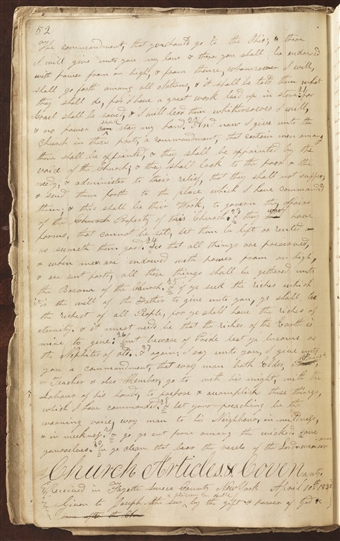 52
the commandment, that ye should go to the Ohio; & there
I will give unto you my law, & there you shall be endowed
with power from on high, & from thence, whomsoever I will,
shall go forth among all nations, & it shall be told them what
they shall do, for I have a great work laid up in store for
Israel shall be saved, & I will lead them whithersoever I will,
& no power can stay my hand. & now I give unto the
Church in these parts, a commandment, that certain men among
them shall be appointed, & they shall be appointed by the
voice of the Church; & they shall look to the poor & the
needy, & administer to their relief, that they shall not suffer,
& send them forth to the place which I have commanded
them; & this shall be their work, to govern the affairs
of the Property of this Church; & they that have
farms, that cannot be sold, let them be left or rented as
seemeth them good. See that all things are preserved,
& when men are endowed with power from on high,
& are sent forth, all these things shall be gathered unto
the Bosom of the Church. & if ye seek the riches which
it is the will of the Father to give unto you, ye shall be
the richest of all People, for ye shall have the riches of
eternity. & it must needs be that the riches of the Earth is
mine to give: but beware of Pride lest ye become as
the Nephites of old. & again I say unto you, I give unto
you a commandment, that every man both Elder, Priest
& Teacher & also Member, go to with his might, with the
labour of his hands, to prepare & accomplish these things,
which I have commanded. & let your preaching be the
warning voice, every man to his Neighbour, in mildness,
& in meekness. & go ye out from among the wicked, save
yourselves. be ye clean that bear the vessels of the Lord
Church Articles & Coven
Received in Fayette Seneca County New York April 10th 1830
Given to Joseph the Seer by the gift & power of God